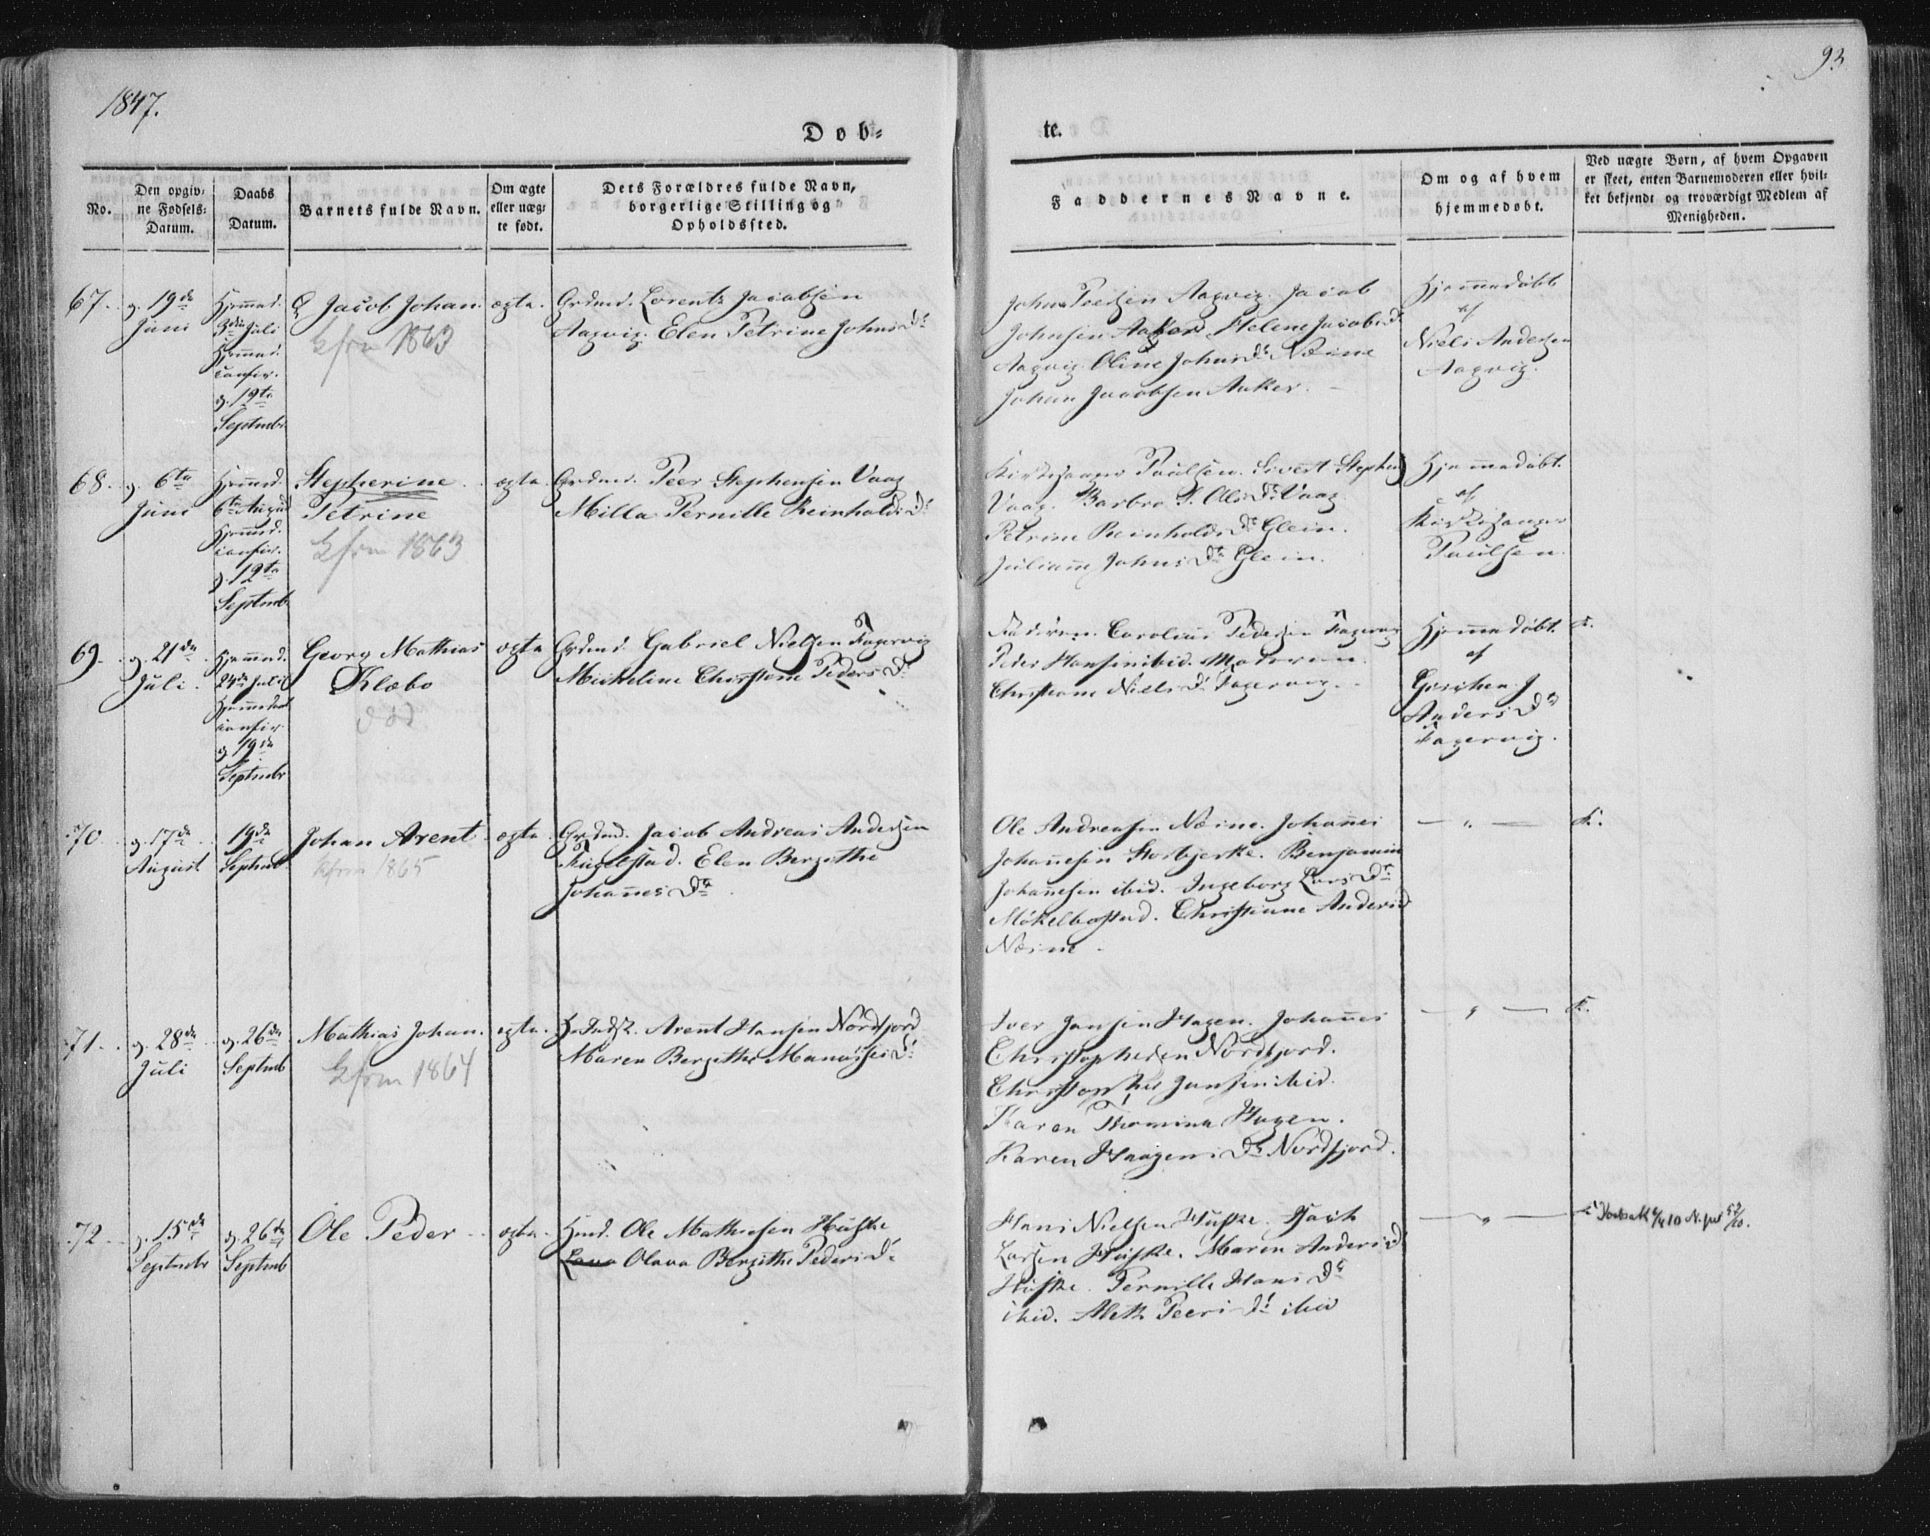 1847.
93
Døb=
te.
No.
Den opgiv=
ne Fødsels=
Datum.
Daabs
Datum.
Barnets fulde Navn.
Om ægte
eller uæg=
te født.
Dets Forældres fulde Navn,
borgerlige Stilling og
Opholdssted.
Faddernes Navne.
Om og af hvem
hjemmedøbt.
Ved uægte Børn, af hvem Opgaven
er skeet, enten Barnemoderen eller hvil=
ket bekjendt og troværdigt Medlem af
Menigheden.
67. d. 19de
Juni
Hjemmed.
3die Juli
Hjemmed.
confir.
d. 12te
Septembr
Jacob Johan.
Kfrm 1863
ægte.
Grdmd. Lorentz Jacobsen
Aagvig. Elen Petrine JohnsDr
Johan Pedersen Aagvig. Jacob
Johnsen Aaker. Helene JacobsDr
Aagvig. Oline JohnsDr Næsne
Johan Jacobsen Aaker.
Hjemmedøbt
af
Niels Andersen
Aagvig.
68. d. 6te
Juni
Hjemmd.
6te August
Hjemmd.
confir.
d. 12te
Septemb
Stepherine
Petrine
Kfrm 1863
ægte
Grdmd. Peer Stephensen Vaag
Milla Pernille ReinholdsDr
Kirkesanger Paulsen. Sivert Stephens
Vaag. Barbro P. OlsDr Vaag
Petrine ReinholdsDr Glein.
Juliane JohnsDr Glein.
Hjemmedøbt.
af
Kirkesanger
Paulsen.
69. d. 21de
Juli.
Hjemmd.
24de Juli
Hjemmedøbt
confir
d. 19de
Septembr
Georg Mathias
Klæbo
død
ægte
Grdmd. Gabriel Nielsen Fagervig
Micheline Christine PedersDr
Faderen. Carolius Pedersen Fagervig
Peder Hansen ibid. Moderen.
Christiane NielsDr Fagervig.
Hjemmedøbt.
af
AndersDr
Fagervig.
K.
70. d. 17de
August
19de
Septemb
Johan Arent
Kfrm 1865
ægte
Grdmd. Jacob Andreas Andersen
Elen Bergithe
JohannesDr.
Ole Andreasen Næsne. Johannes
Johannesen Storbjerke. Benjamin
Johannesen ibid. Ingeborg LarsDr
Møkelbostad. Christianne AndersD
Næsne.
— " —
K.
71. d. 28de
Juli
d. 26de
Septemb
Mathias Johan.
Kfrm 1864
ægte.
Arent Hansen Nordfjord
Maren Bergithe ManassesDr
Iver Jansen Hagen. Johannes
Christophersen Nordfjord.
Christopher Jansen ibid.
Karen Thomina Hagen.
Karen HaagensDr Nordfjord.
— " —
K.
72. d. 15de
Septembr
d. 26de
Septemb
Ole Peder
ægte.
Hmd. Ole Mathiesen Huske
Lava Olava Bergithe PedersDr
Hans Nielsen Huske.
Larsen Huske. Maren AndersD
Huske. Pernille HansDr
ibid. Aleth PeersDr ibid
— " —